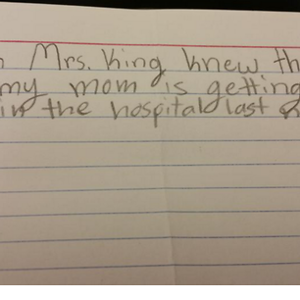 Mrs. King knew th
my mom is getting
in the hospital last